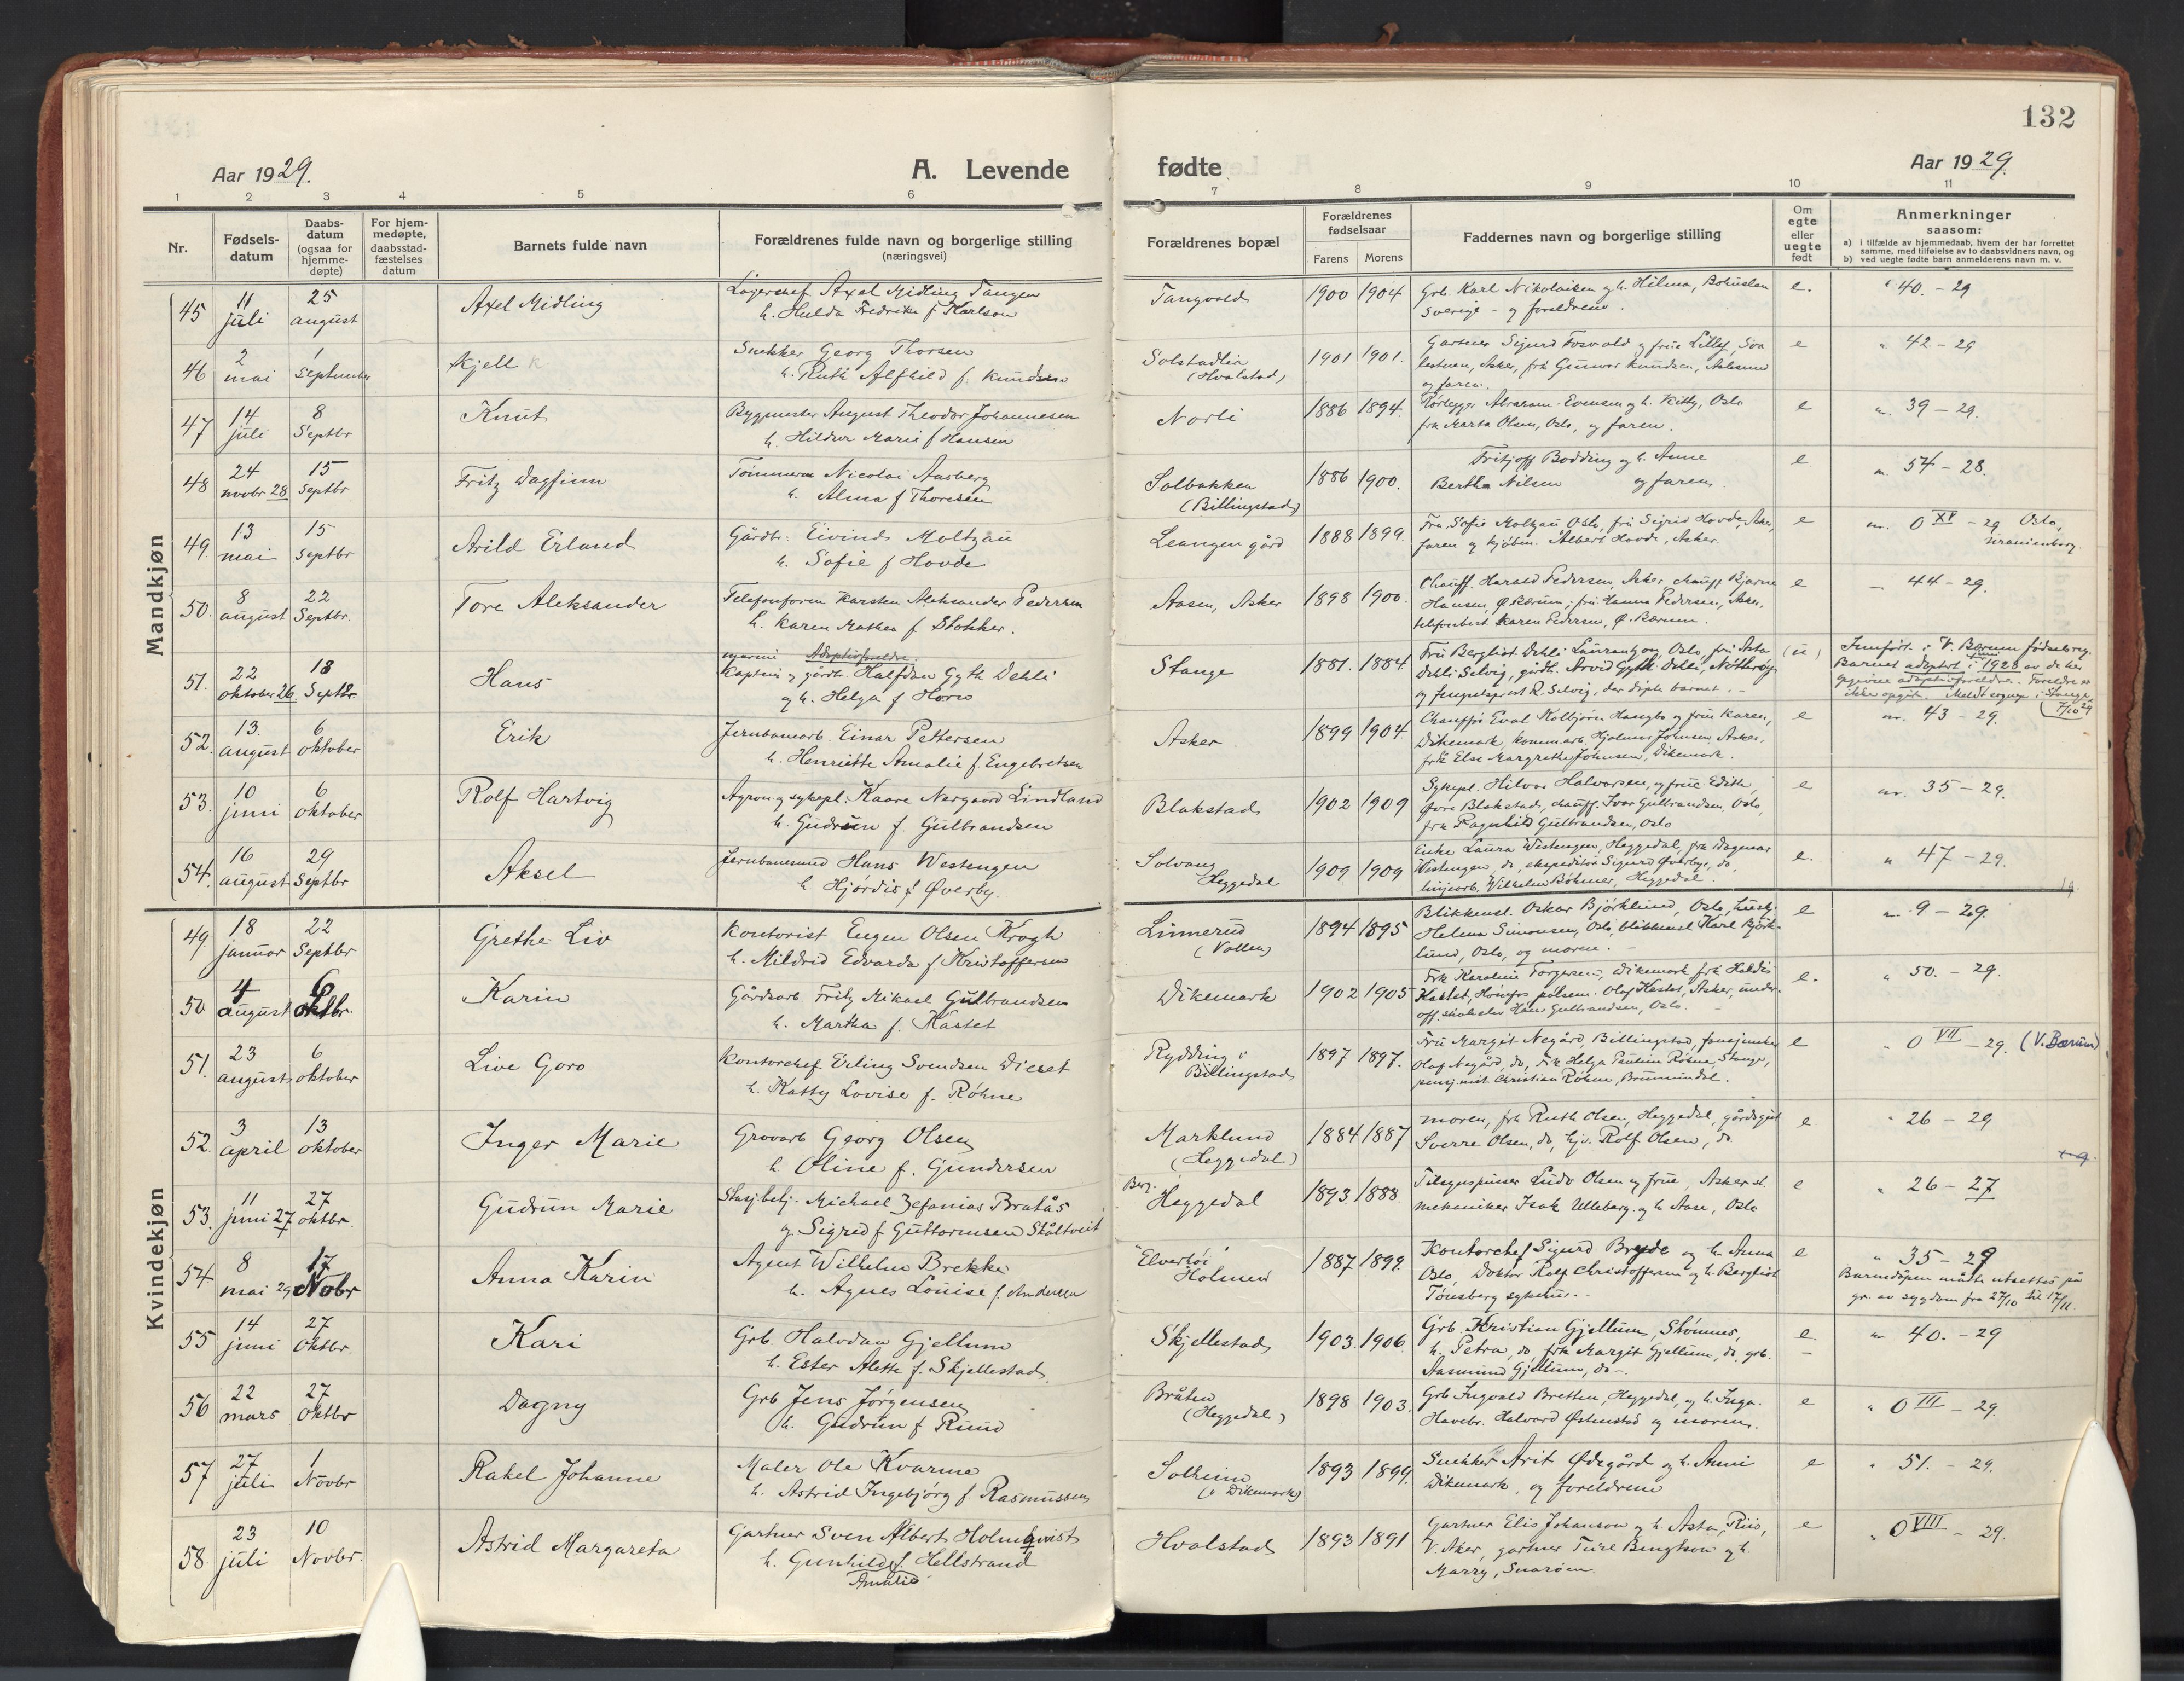 132
Aar 1929.
A. Levende fødte
Aar 1929.
1 2 3 4 5 6 7 8 9 10 11
Nr.
Fødsels-
datum
Daabs-
datum
(ogsaa for
hjemme-
døpte)
For hjem-
medøpte,
daabsstad-
fæstelses
datum
Barnets fulde navn
Forældrenes fulde navn og borgerlige stilling
(næringsvei)
Forældrenes bopæl
Forældrenes
fødselsaar
Farens Morens
Faddernes navn og borgerlige stilling
Om
egte
eller
uegte
født
Anmerkninger
saasom:
a) i tilfælde av hjemmedaab, hvem der har forrettet
samme, med tilføielse av to daabsvidners navn, og
b) ved uegte fødte barn anmelderens navn m. v.
Mandkjøn
45 11 juli 25 august Axel Midling
Lagerchef Axel Midling Tangen
h. Hulda Fredrika f Karlson
Tangvold 1900 1904
Grb. Karl Nikolaisen og h. Hilma, Bohuslen
Sverige - og foreldrene.
e. " 40. - 29
46 2 mai 1 September Kjell
Snekker Georg Thorsen
h. Ruth Alfhild f. Knudsen
Solstadlia
(Hvalstad)
1901 1901.
Gartner Sigurd Fosvold og frue Lilly,
Asker, frk Gunvor Knudsen,
og faren.
e " 42 - 29
47 14 juli 8 Septbr Knut
Bygmester August Theodor Johannesen
h. Hildur Marie f Hansen
Norli 1886 1894.
Rørlegger Abraham Evensen og h. Kitty, Oslo
fru Marta Olsen, Oslo, og faren.
e 39 - 29.
48 24 novbr 28 15 Septbr Fritz Dagfinn
Tømmerm Nicolai Aasberg
h. Alma f Thoresen
Solbakken
(Billingstad)
1886 1900.
Fritjoff Bodding og h. Anne
Bertha Nilsen og faren.
e 54 - 28.
49. 13 mai 15 Septbr Arild Erland
Gårdbr. Eivind Moltzau
h. Sofie f Hovde
Leangen gård 1888 1899.
Fru Sofie Moltzau Oslo, fru Sigrid Hovde, Asker,
faren og kjøbm. Albert Hovde, Asker.
e 0 XV - 29 Oslo,
Uranienborg.
50. 8 august 22 Septbr. Tore Aleksander
Telefonform Karsten Aleksander Pedersen
h. Karen Mathea f Stokker.
Aasen, Asker 1898 1900.
Chauff. Harald Pedersen Asker, chauff Bjarne
Hansen, Ø. Bærum; fru Hanna Pedersen, Asker,
telefonbest. Karen Pedersen, Ø. Bærum.
e - 44 - 29.
51. 22 oktober 26. 18 Septbr. Hans
marine Adoptivforeldre.
Kaptein og gårdbr. Halfdan Gyth Dehli
og h. Helga f Horn
Stange 1881. 1884
Fru Bergliot Dehli Laurantzon, Oslo, fru Asta
Dehli Selvig, gårdbr. Arvid Gyth Dehli, Nøtterøy
og fengselsprest R. Selvig, der døpte barnet. -
(u)
Innført i V. Bærum fødselsreg.
Barnet adoptert i juni 1928 av de her
opgivne adoptivforeldre. Foreldre er
ikke opgit. Meldt sognepr. i Stange
7/10 29
52. 13. august 6 oktober Erik
Jernbanearb. Einar Pettersen
h. Henriette Amalie f. Engebretsen
Asker. 1899 1904
Chauffør Eval Kolbjørn Haugbo og frue Karen,
Dikemark, komm.arb. Hjalmar Johnsen, Asker,
frk Else Margrethe Johnsen, Dikemark.
e nr. 43 - 29.
53. 10 juni 6 oktober Rolf Hartvig
Agron og sykepl. Kaare Nergaard Lindland
h. Gudrun f. Gulbrandsen
Blakstad 1902 1909
Sykepl. Hilvar Halvorsen, og frue Edith,
øvre Blakstad, chauff. Ivar Gulbrandsen Oslo,
frk Ragnhild Gulbrandsen, Oslo
e nr. 35 - 29.
54. 16 august 29 Septbr Aksel
Jernbanemand Hans Westengen
h. Hjørdis f Øverby.
Solvang
Heggedal
1909 1909
Enke Laura Westengen, Heggedal, frk Dagmar
Westengen, do, ekspeditør Sigurd Øverby, do,
linjearb. Wilhelm Böhmer, Heggedal.
e. " 47 - 29.
Kvindekjøn
49. 18 januar 22 Septbr Grethe Liv
Kontorist Eugen Olsen Krogh
h. Mildrid Edvarda f. Kristoffersen
Linnerud
(Vollen)
1894 1895
Blikkensl. Oskar Bjørklund, Oslo,
Helena Simonsen, Oslo, blikkensl Karl Bjørk-
lund, Oslo, og moren. -
e 9 - 29.
50 4 august 6 oktbr. Karin
Gårdsarb Fritz Mikael Gulbrandsen
h. Martha f. Hastet
Dikemark 1902 1905
Frk Karoline Torgersen, Dikemark frk Haldis
Hastet, Hønefos, Olaf Hastet, Asker, under-
off.skole elev Hans Gulbrandsen, Oslo.
e. " 50. - 29.
51. 23 august 6 oktober Live Goro
Kontorchef Erling Svendsen Dieset
h. Katty Lovise f. Röhne
Rydding i
Billingstad
1897 1897.
Fru Margit Negård, Billingstad, fanejunker
Olaf Negård, do, Frk Helga Pauline Röhne, Stange,
Christian Röhne, Brumunddal.
e " 0 VII - 29. (V. Bærum)
52. 3 april 13 oktober Inger Marie
Grovarb Georg Olsen
h. Oline f. Gundersen
Marklund
(Heggedal)
1884 1887
moren, frk Ruth Olsen, Heggedal, gårdsgut
Sverre Olsen, do, hjv. Rolf Olsen, do.
e " 26 - 29
53. 11 juni 27 27 oktbr. Gudrun Marie
Stasjbetj. Michael Zefanias Bratås
og Sigred f Guttormsen Skåltveit
Berg.
Heggedal
1893. 1888.
Tilsynspusser Ludv Olsen og frue, Asker st.
mekaniker Isak Ulleberg og h Aase, Oslo
e " 26 - 27
54. 8 mai 29 17 Nobr Anna Karin
Agent Wilhelm Brekke
h. Agnes Louise f. Andersen
"Elverhøi"
Holmen
1887 1899.
Kontorchef Sigurd Bryde og h. Anna
Oslo, Doktor Rolf Christoffersen og h. Bergliot
Tønsberg sykehus. -
e " 35 - 29
Barnedåpen måtte utsettes på
gr. av sygdom fra 27/10 til 17/11.
55 14 juni 27 Oktbr. Kari
Grb. Halvdan Gjellum
h. Ester Alette f. Skjellestad.
Skjellestad 1903. 1906.
Grb. Kristian Gjellum, Stømnes,
h. Petra, do frk Margit Gjellum, do, grb.
Aasmund Gjellum, do -
e. 40. - 29
56 22 mars 27 Oktbr Dagny
Grb Jens Jørgensen
h. Gudrun f Ruud
Bråten
(Heggedal)
1898 1903.
Grb Ingvald Brethen, Heggedal, og h. Inga.
Havebr. Halvard Østenstad og moren.
e " 0 III - 29.
57 27 juli 1 Novbr Rakel Johanne
Maler Ole Kvarme
h. Astrid Ingebjørg f. Rasmussen
Solheim
(v Dikemark)
1893 1899.
Snekker Arit Ødegård og h. Anni
Dikemark, og foreldrene
e " 51. - 29.
58. 23 juli 10 Novbr. Astrid Margareta
Gartner Sven Albert Holmqvist
h. Gunhild f. Hellstrand
Amalie
Hvalstad 1893 1891
Gartner Elis Johanson og h. Asta, Riis,
V. Aker, gartner Ture Bengtson og h.
Marry, Snarøen.
e " 0 VIII - 29.